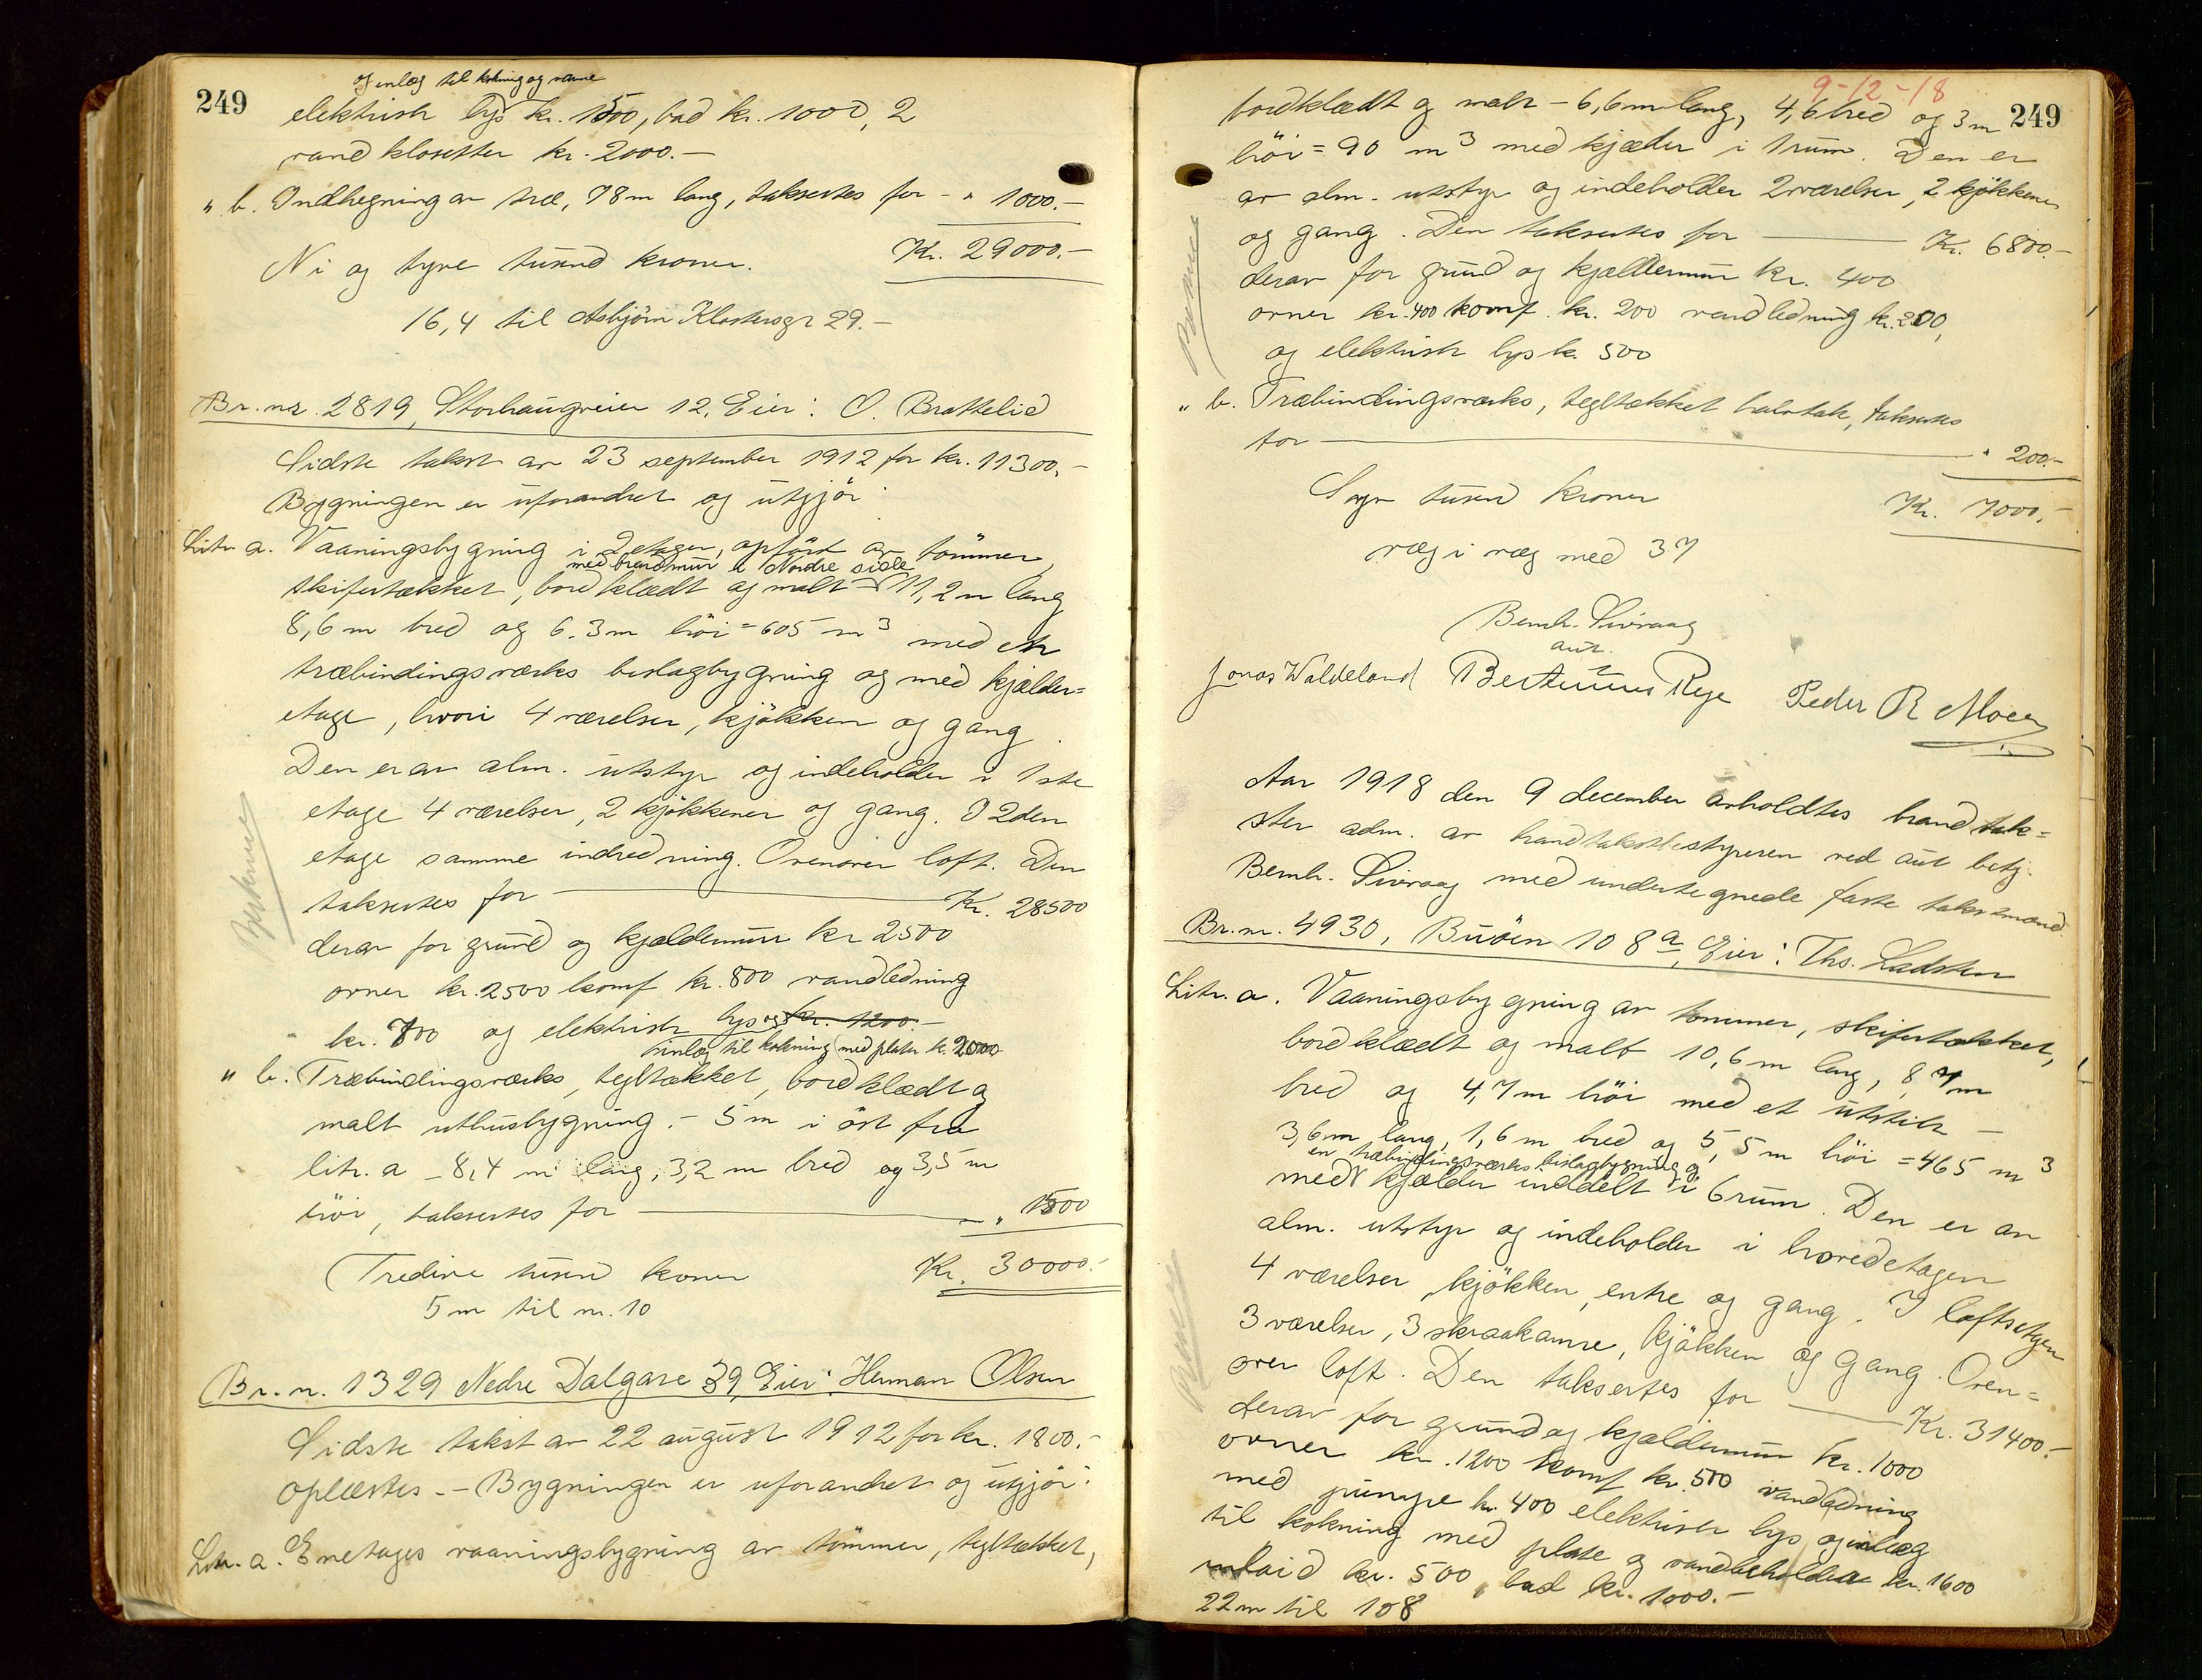 249
og inlæg til kokning og varme
elektrisk lys kr. 1500, bad kr. 1000, 2
vand klosetter kr. 2000.-
" b. Indhegning av træ, 78 m lang, taksertes for - " 1000.-
Ni og tyve tusend kroner. Kr. 29000.-
16,4 til Asbjørn Klostersgr 29.-
Br. nr. 2819, Storhaugveien 12, Eier: O. Brattelid
Sidste takst av 23 september 1912 for kr. 11300.-
Bygningen er uforandret og utgjör:
Litr. a. Vaaningsbygning i 2 etager, opført av tömmer,
med brandmur i Nordre side
skifertækket, bordklædt og malt - 11,2 m lang
8,6 m bred og 6.3 m höi = 605 m³ med et
træbindingsværks bislagbygning og med kjælder=
etage, hvori 4 værelser, kjökken og gang.
Den er av alm. utstyr og indeholder i 1ste
etage 4 værelser, 2 kjökkener og gang. I 2den
etage samme indredning. Ovenover loft. Den
taksertes for Kr. 28500
derav for grund og kjældermur kr 2500
ovner kr. 2500 komf kr. 800 vandledning
kr. 700 og elektrisk lys og kr. 1200.-
inlæg til kokning med plater kr. 2000
" b. Træbindingsværks, tegltækket, bordklædt og
malt uthusbygning. - 5 m i öst fra
litr. a - 8,4 m lang, 3,2 m bred og 3,5 m
höi, taksertes for - " 1500
Tredive tusend kroner Kr. 30000.-
5 m til nr. 10
Br. nr. 1329 Nedre Dalgate 39, Eier: Herman Olsen
Sidste takst av 22 august 1912 for kr. 1800.-
oplæstes. - Bygningen er uforandret og utgjör:
Litr. a. Enetages vaaningsbygning av tömmer, tegltækket,
9-12-18
249
bordklædt og malt - 6,6 m lang, 4,6 bred og 3 m
höi = 90 m³ med kjælder i 1 rum. Den er
av alm. utstyr og indeholder 2 værelser, 2 kjökkener
og gang. Den taksertes for Kr. 6800.-
derav for grund og kjældermur kr. 400
ovner kr. 400 komf. kr. 200 vandledning kr. 200,
og elektrisk lys k. 500
" b. Træbindingsværks, tegltækket halvtak, taksertes
for " 200.-
Syv tusend kroner Kr. 7000.-
væg i væg med 37
Bernh. Sivraag
aut.
Jonas Waldeland Bertinius Rege Peder R Moen
Aar 1918 den 9 december avholdtes brandtak=
ster adm. av brandtakstbestyreren ved aut betj.
Bernh. Sivraag med undertegnede faste takstmænd.
Br. nr. 4930, Buöen 108 a, Eier: Ths. Ladsten
Litr. a. Vaaningsbygning av tömmer, skifertækket,
bordklædt og malt 10,6 m lang, 8,7 m
bred og 4,7 m höi med et utstik -
3,6 m lang, 1,6 m bred og 5,5 m höi = 465 m³
en træbindingsværks bislagbygning og
med kjælder inddelt i 6 rum. Den er av
alm. utstyr og indeholder i hovedetagen
4 værelser, kjökken, entre og gang. I loftsetagen
3 værelser, 3 skraakamre, kjökken og gang. Oven=
over loft. Den taksertes for Kr. 31400.-
derav for grund og kjældermur kr. 1000
ovner kr. 1200 komf kr. 500 vandledning
med pumpe kr. 400 elektrisk lys og inlæg
til kokning med plate og vandbeholder kr. 1600
inlaid kr. 500, bad kr. 1000.-
22 m til 108